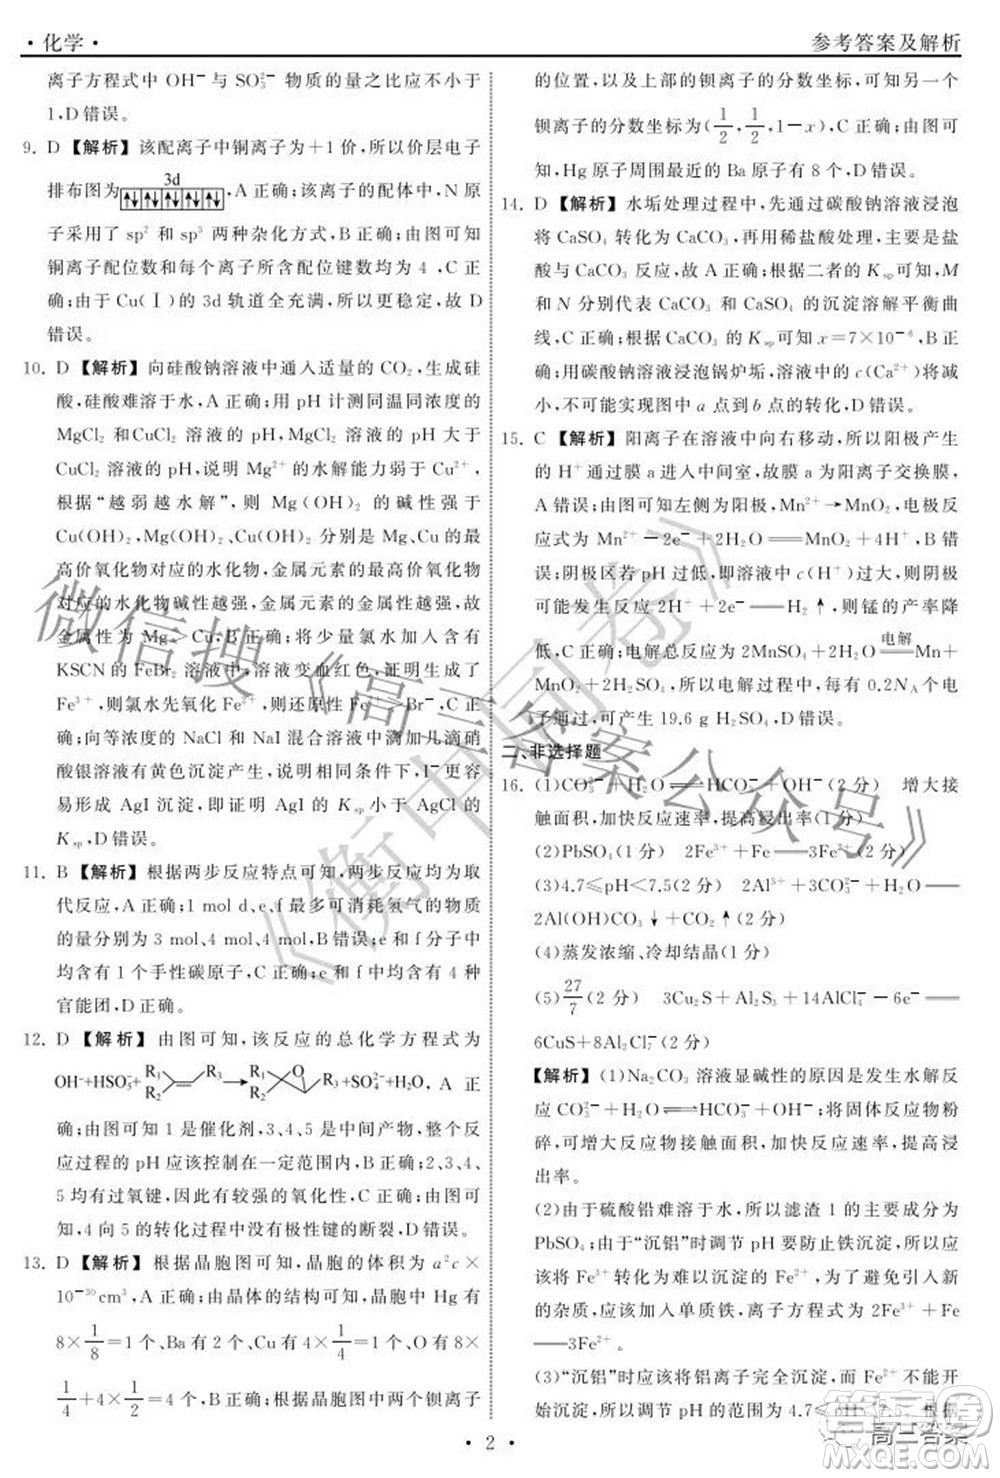 · 化学 ·
参考答案及解析
离子方程式中 OH⁻ 与 SO₃²⁻ 物质的量之比应不小于
1,D 错误。
9. D 【解析】该配离子中铜离子为+1 价,所以价层电子
3d
排布图为[↑↓|↑↓|↑↓|↑↓|↑↓],A 正确;该离子的配体中,N 原
子采用了 sp² 和 sp³ 两种杂化方式,B 正确;由图可知
铜离子配位数和每个离子所含配位键数均为 4 ,C 正
确;由于 Cu(Ⅰ) 的 3d 轨道全充满,所以更稳定,故 D
错误。
10. D 【解析】向硅酸钠溶液中通入适量的 CO₂,生成硅
酸,硅酸难溶于水,A 正确;用 pH 计测同温同浓度的
MgCl₂ 和CuCl₂ 溶液的 pH,MgCl₂ 溶液的 pH 大于
CuCl₂ 溶液的 pH,说明 Mg²⁺的水解能力弱于 Cu²⁺,
根据“越弱越水解”,则 Mg(OH)₂ 的碱性强于
Cu(OH)₂,Mg(OH)₂、Cu(OH)₂ 分别是 Mg、Cu 的最
高价氧化物对应的水化物,金属元素的最高价氧化物
对应的水化物碱性越强,金属元素的金属性越强,故
金属性为 Mg>Cu,B 正确;将少量氯水加入含有
KSCN 的 FeBr₂ 溶液中,溶液变血红色,证明有
Fe³⁺,则氯水先氧化 Fe²⁺,则还原性 Fe²⁺>Br⁻,C 正
确;向等浓度的 NaCl 和 NaI 混合溶液中滴加几滴硝
酸银溶液有黄色沉淀产生,说明相同条件下,I⁻更容
易形成 AgI 沉淀,即证明 AgI 的 Kₛₚ小于 AgCl 的
Kₛₚ,D 错误。
11. B 【解析】根据两步反应特点可知,两步反应均为取
代反应,A 正确;1 mol d、e、f 最多可消耗氢气的物质
的量分别为 3 mol、4 mol、4 mol,B 错误;e 和 f 分子中
均含有 1 个手性碳原子,C 正确;e 和 f 分子中均含有 4 种
官能团,D 正确。
12. D 【解析】由图可知,该反应的总化学方程式为
OH⁻+HSO₅⁻+ R₁ R₂ R₃ → R₁ R₂ O R₃ +SO₄²⁻+H₂O, A 正
确;由图可知 1 是催化剂,3、4、5 是中间产物,整个反
应过程的 pH 应该控制在一定范围内,B 正确;2、3、4、
5 均有过氧键,因此有较强的氧化性,C 正确;由图可
知,4 向 5 的转化过程中没有极性键的断裂,D 错误。
13. D 【解析】根据晶胞图可知,晶胞的体积为 a²c×
10⁻³⁰ cm³,A 正确;由晶体的结构可知,晶胞中 Hg 有
8×1/8=1 个、Ba 有 2 个、Cu 有 4×1/4=1 个、O 有 8×
1/4+4×1/2=4 个,B 正确;根据晶胞图中两个钡离子
的位置,以及上部的钡离子的分数坐标,可知另一个
钡离子的分数坐标为(1/2,1/2,1-x),C 正确;由图可
知,Hg 原子周围的最近的 Ba 原子有 8 个,D 错误。
14. D 【解析】水垢处理过程中,先通过碳酸钠溶液浸泡
将 CaSO₄ 转化为 CaCO₃,再用稀盐酸处理,主要是盐
酸与 CaCO₃ 反应,故 A 正确;根据二者的 Kₛₚ可知,M
和 N 分别代表 CaCO₃ 和 CaSO₄ 的沉淀溶解平衡曲
线,C 正确;根据 CaCO₃ 的 Kₛₚ可知 x=7×10⁻⁶,B
正确;用碳酸钠溶液浸泡锅炉垢,溶液中的 c(Ca²⁺)减
小,不可能实现图中 a 点到 b 点的转化,D 错误。
15. C 【解析】阳离子在溶液中向右移动,所以阳极产生
的 H⁺通过膜 a 进入中间室,故膜 a 为阳离子交换膜,
A 错误;由图可知左侧为阳极,Mn²⁺→MnO₂,电极反
应式为 Mn²⁺−2e⁻+2H₂O══MnO₂+4H⁺,B 错
误;阴极区若 pH 过小,即溶液中 c(H⁺)过大,则阴极
可能发生反应 2H⁺+2e⁻══H₂↑,则锰的产率降
低,C 正确;电解总反应为 2MnSO₄+2H₂O 电解══ Mn+
MnO₂+2H₂SO₄,所以电解过程中,每有 0.2Nₐ个电
子通过,可产生 19.6 g H₂SO₄,D 错误。
二、非选择题
16. (1)CO₃²⁻+H₂O⇌HCO₃⁻+OH⁻(2 分) 增大接
触面积,加快反应速率,提高浸出率(1 分)
(2)PbSO₄(1 分) 2Fe³⁺+Fe══3Fe²⁺(2 分)
(3)4.7≤pH<7.5(2 分) 2Al³⁺+3CO₃²⁻+H₂O══
2Al(OH)CO₃↓+CO₂↑(2 分)
(4)蒸发浓缩、冷却结晶(1 分)
(5)27/7(2 分) 3Cu₂S+Al₂S₃+14Cl⁻−6e⁻══
6CuS+8Al₂Cl₇⁻(2 分)
【解析】(1)Na₂CO₃ 溶液显碱性的原因是发生水解反
应 CO₃²⁻+H₂O⇌HCO₃⁻+OH⁻;将固体反应物粉
碎,可增大反应物接触面积,加快反应速率,提高浸
出率。
(2)由于硫酸铅难溶于水,所以滤渣 1 的主要成分为
PbSO₄;由于“沉铝”时调节 pH 要防止铁沉淀,所以应
该将 Fe³⁺转化为难以沉淀的 Fe²⁺,为了避免引入新
的杂质,应该加入单质铁,离子方程式为 2Fe³⁺+Fe
══3Fe²⁺。
(3)“沉铝”时应该将铝离子完全沉淀,而 Fe²⁺不能开
始沉淀,所以调节 pH 的范围为 4.7≤pH<7.5;
· 2 ·
微信搜《高三答案公众号》
《衡中同卷》
答案圈
MXQE.COM
高三答案